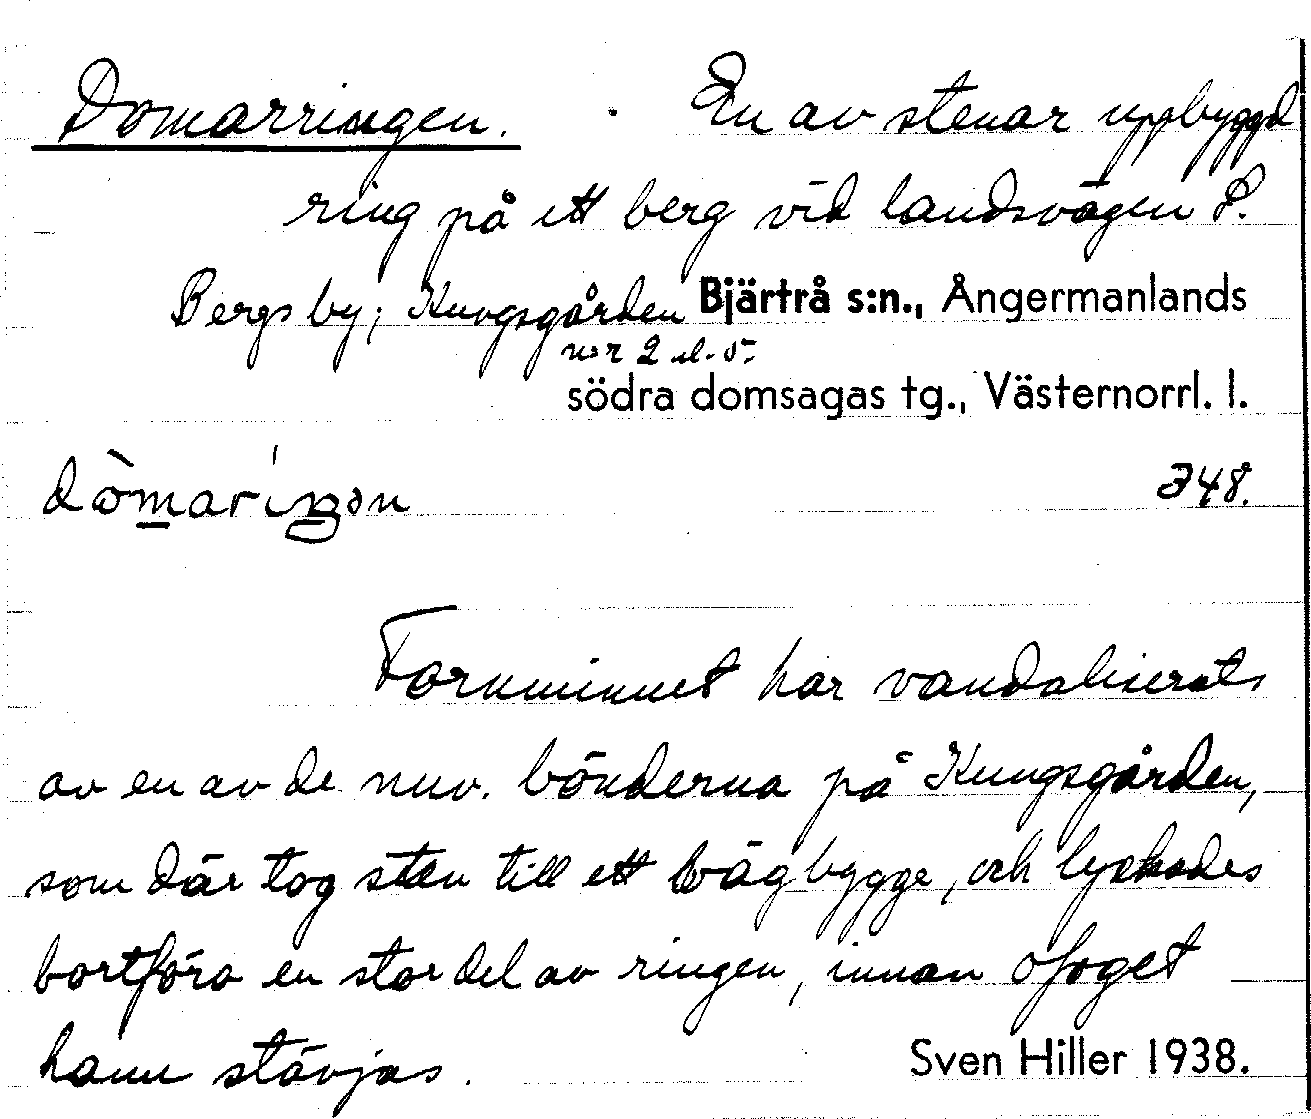 Domarringen. En av stenar uppbyggd
ring på ett berg vid landsvägen S.
Bergs by; Kungsgården Bjärtrå s:n., Ångermanlands
n:r 2
södra domsagas tg., Västernorrl. l.
348.
Fornminnet har vandaliserats
av en av de nuv. bönderna på Kungsgården,
som där tog sten till ett vägbygge, och lyckades
bortföra en stor del av ringen, innan ofoget
hann stävjas. Sven Hiller 1938.